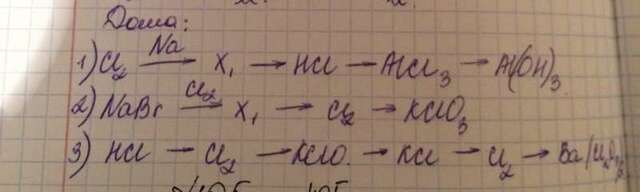 Дома:
1) Cl₂ Na→ X₁ → HCl → AlCl₃ → Al(OH)₃
2) NaBr Cl₂→ X₁ → Cl₂ → KClO₃
3) HCl → Cl₂ → KClO → KCl → Cl₂ →